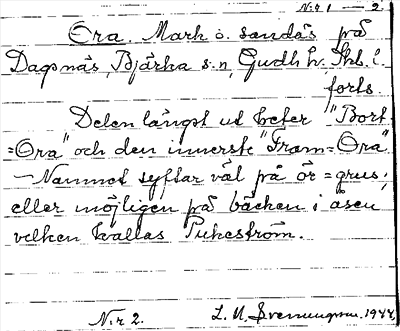 N:r 1 — 2.
Ora. Mark o. sandås på
Dagsnäs, Bjärka s:n, Gudh. h. Skb. l.
forts.
Delen längst ut heter "Bort
=Ora" och den innerste "Fram=Ora".
— Namnet syftar väl på ör = grus,
eller möjligen på bäcken i åsen
vilken kallas Pukeström.
N:r 2. L. M. Svenungsson. 1944.